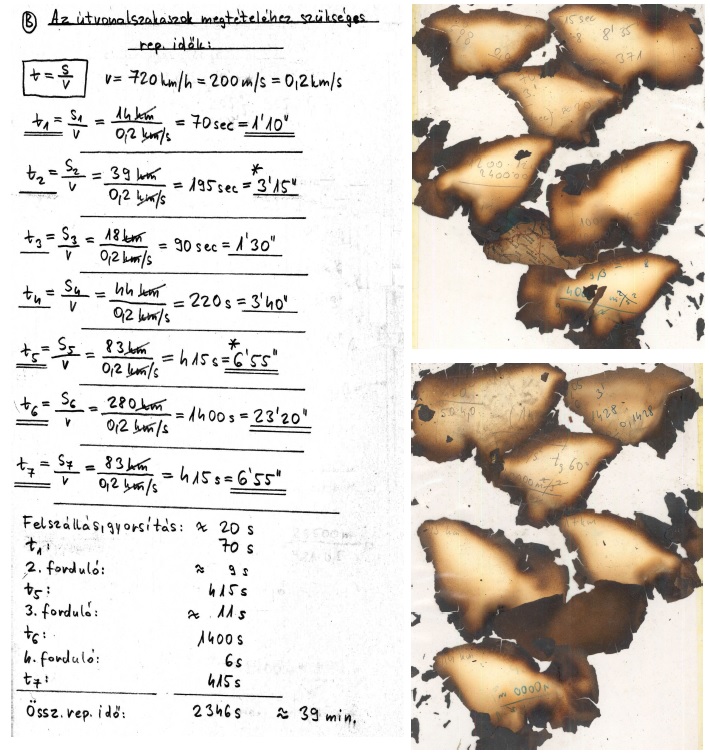 Ⓑ Az útvonalszakaszok megtételéhez szükséges
rep. idők:
t = s/v   v = 720 km/h = 200 m/s = 0,2 km/s
t₁ = S₁/v = 14 km / 0,2 km/s = 70 sec = 1'10"
t₂ = S₂/v = 39 km / 0,2 km/s = 195 sec = *3'15"
t₃ = S₃/v = 18 km / 0,2 km/s = 90 sec = 1'30"
t₄ = S₄/v = 44 km / 0,2 km/s = 220 s = 3'40"
t₅ = S₅/v = 83 km / 0,2 km/s = 415 s = *6'55"
t₆ = S₆/v = 280 km / 0,2 km/s = 1400 s = 23'20"
t₇ = S₇/v = 83 km / 0,2 km/s = 415 s = 6'55"
Felszállás, gyorsítás: ≈ 20 s
t₁: 70 s
2. forduló: ≈ 9 s
t₅: 415 s
3. forduló: ≈ 11 s
t₆: 1400 s
4. forduló: 6 s
t₇: 415 s
Össz. rep. idő: 2346 s ≈ 39 min.
15 sec
8' 35
371
240000
3'
1428 0,1428
t₃ 60
10000 m